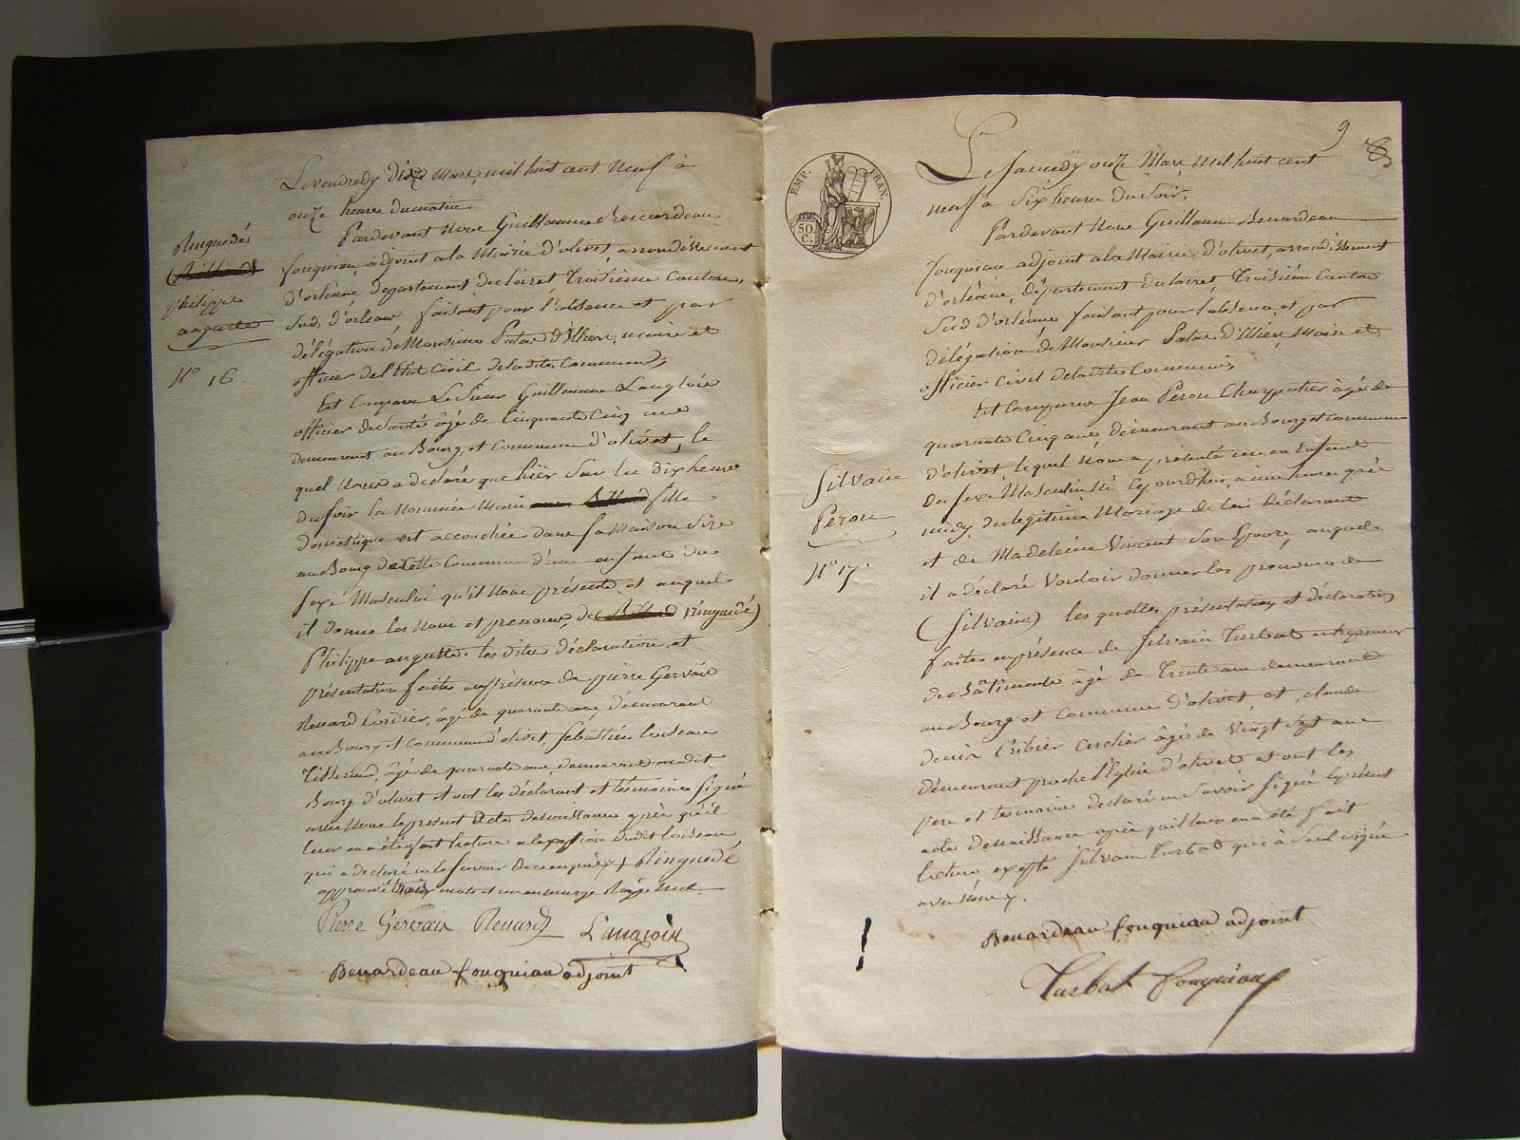 Le vendredy dix Mars, mil huit cent Neuf à
onze heures du matin
Pardevant Nous Guillaume Benardeau
fouquiau, adjoint a la Mairie d'olivet, arrondissement
d'orléans, département du loiret Troisième Canton,
Sud, d'orléans faisant pour l'absence et par
délégation de Monsieur Patas d'Illiers, maire et
officier de l'état Civil de ladite Commune,
Est Comparu Le Sieur Guillaume Langlois
officier de Santé âgé de Cinquante Cinq ans
demeurant au Bourg et Commune d'olivet, le
quel Nous a déclaré que hier Sur les dix heures
du soir la Nommée Marie fille
domestique est accouchée dans sa Maison Sise
au Bourg de Cette Commune d'un enfant du
Sexe Masculin qu'il Nous présente et auquel
il donne les Nom et prenoms de Ringuedé)
Philippe auguste les dites déclaration et
présentation faites en présence de pierre Gervais
Renard Cordier, âgé de quarante ans, demeurant
au Bourg et commune d'olivet, Sébastien Loiseau
Tisserand, âgé de quarante ans, demeurant au dit
Bourg d'olivet et ont les déclarant et témoins Signé
avec Nous le présent acte de naissance après qu'il
leur en a été fait lecture a l'exception du dit Loiseau
qui a déclaré ne le savoir + Ringuedé
approuvé trois mots et un en marge Rayé Nul.
Pierre Gervais Renard Langlois
Benardeau fouquiau adjoint
Ringuedé
philippe
auguste
No 16.
9
EMP. FRAN.
50
C.
Le Samedy onze Mars, mil huit cent
neuf à Six heures du Soir.
Pardevant Nous Guillaume Benardeau
fouquiau adjoint a la Mairie, d'olivet, arrondissement
d'orléans, département du loiret, Troisième Canton
Sud d'orléans faisant pour l'absence, et par
délégation de Monsieur Patas d'Illiers Maire et
officier Civil de ladite Commune,
Est Comparu Jean Péron Charpentier âgé de
quarante Cinq ans, demeurant au Bourg et commune
d'olivet, lequel Nous a présenté un Enfant
du Sexe Masculin Né Cejourd'hui, à une heure après
midy, du légitime Mariage de lui Déclarant
et de Madeleine Vincent Son Epouse, auquel
il a déclaré Vouloir donner les prenoms de
(Silvain) les quelles présentation et déclaration
faites en présence de Silvain Turbat entrepreneur
de Bâtiments âgé de Trente ans demeurant
au Bourg et Commune d'olivet, et, claude
denis Cribier Cerclier âgé de Vingt Sept ans
demeurant proche l'Eglise d'olivet et ont les
pere et témoins déclaré ne Savoir Signé le présent
acte de naissance après qu'il leur en a été fait
lecture, excepté Silvain Turbat qui à Seul signé
avec Nous.
Benardeau fouquiau adjoint
Turbat fouquiau
Silvain
Péron
No 17.